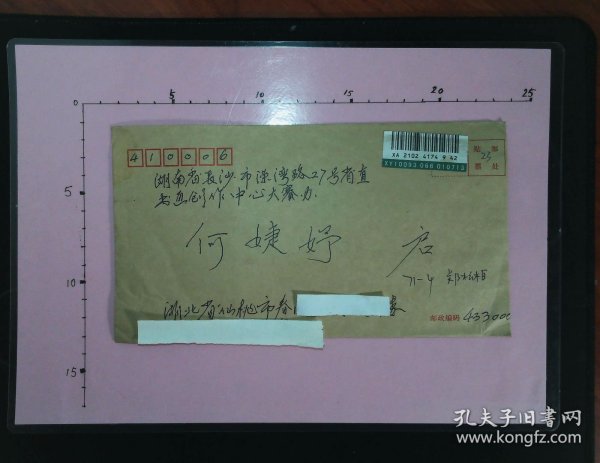 5 10 15 20 25
0
5
10
15
410006
XA 2102 4174 9 42
贴邮
票处
23
湖南省长沙市溁湾路27号省直
书画创作中心大赛办
何婕妤 启
湖北省仙桃市春
邮政编码 433000
孔夫子旧书网
www.kongfz.com